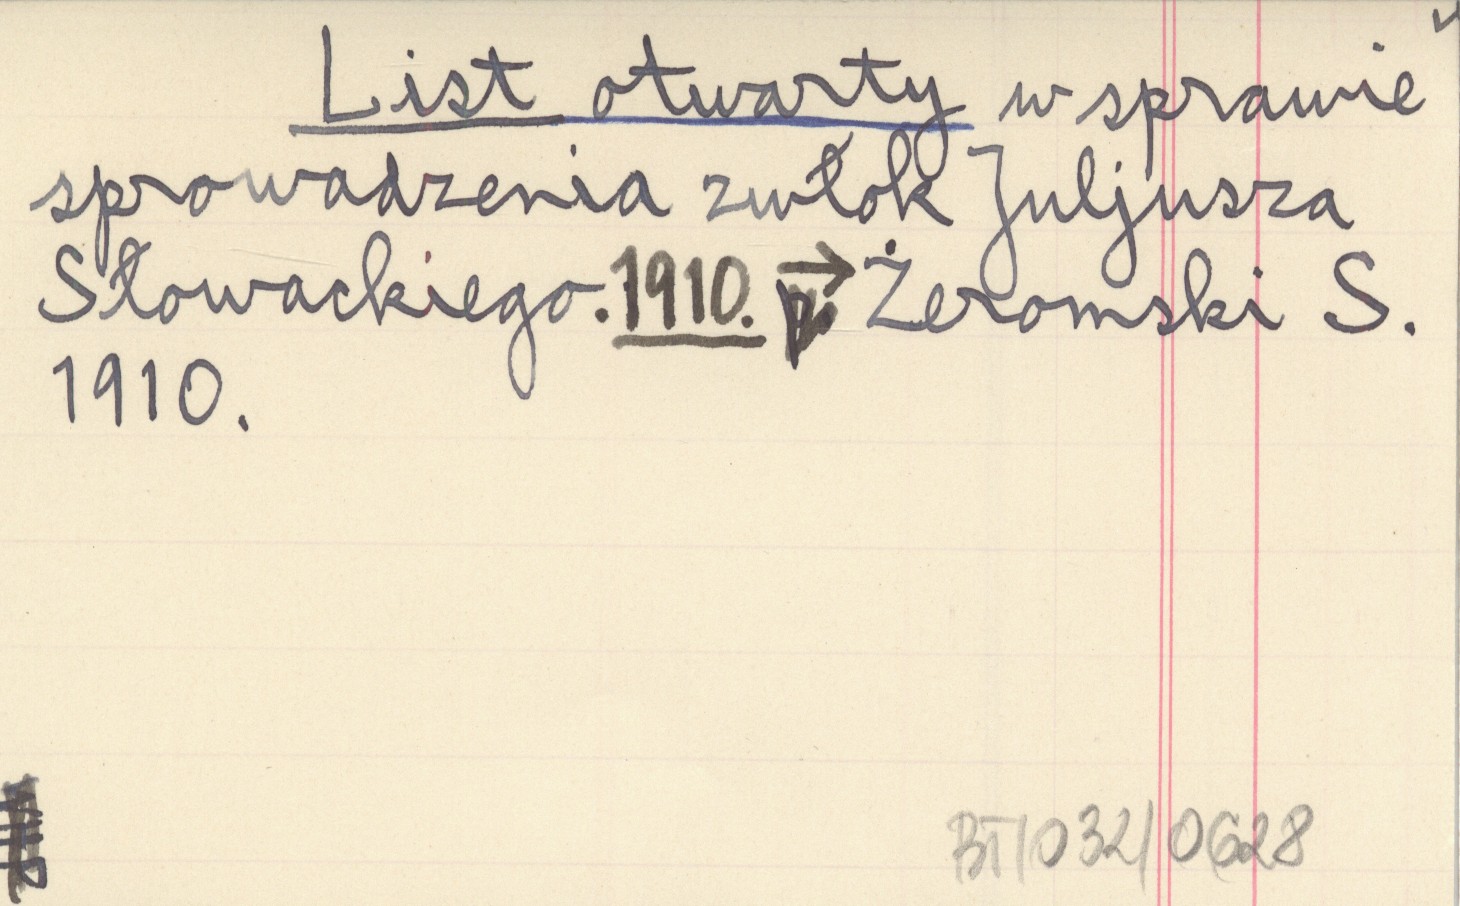 List otwarty w sprawie
sprowadzenia zwłok Juljusza
Słowackiego. 1910. → Żeromski S.
1910.
BT/032/0628